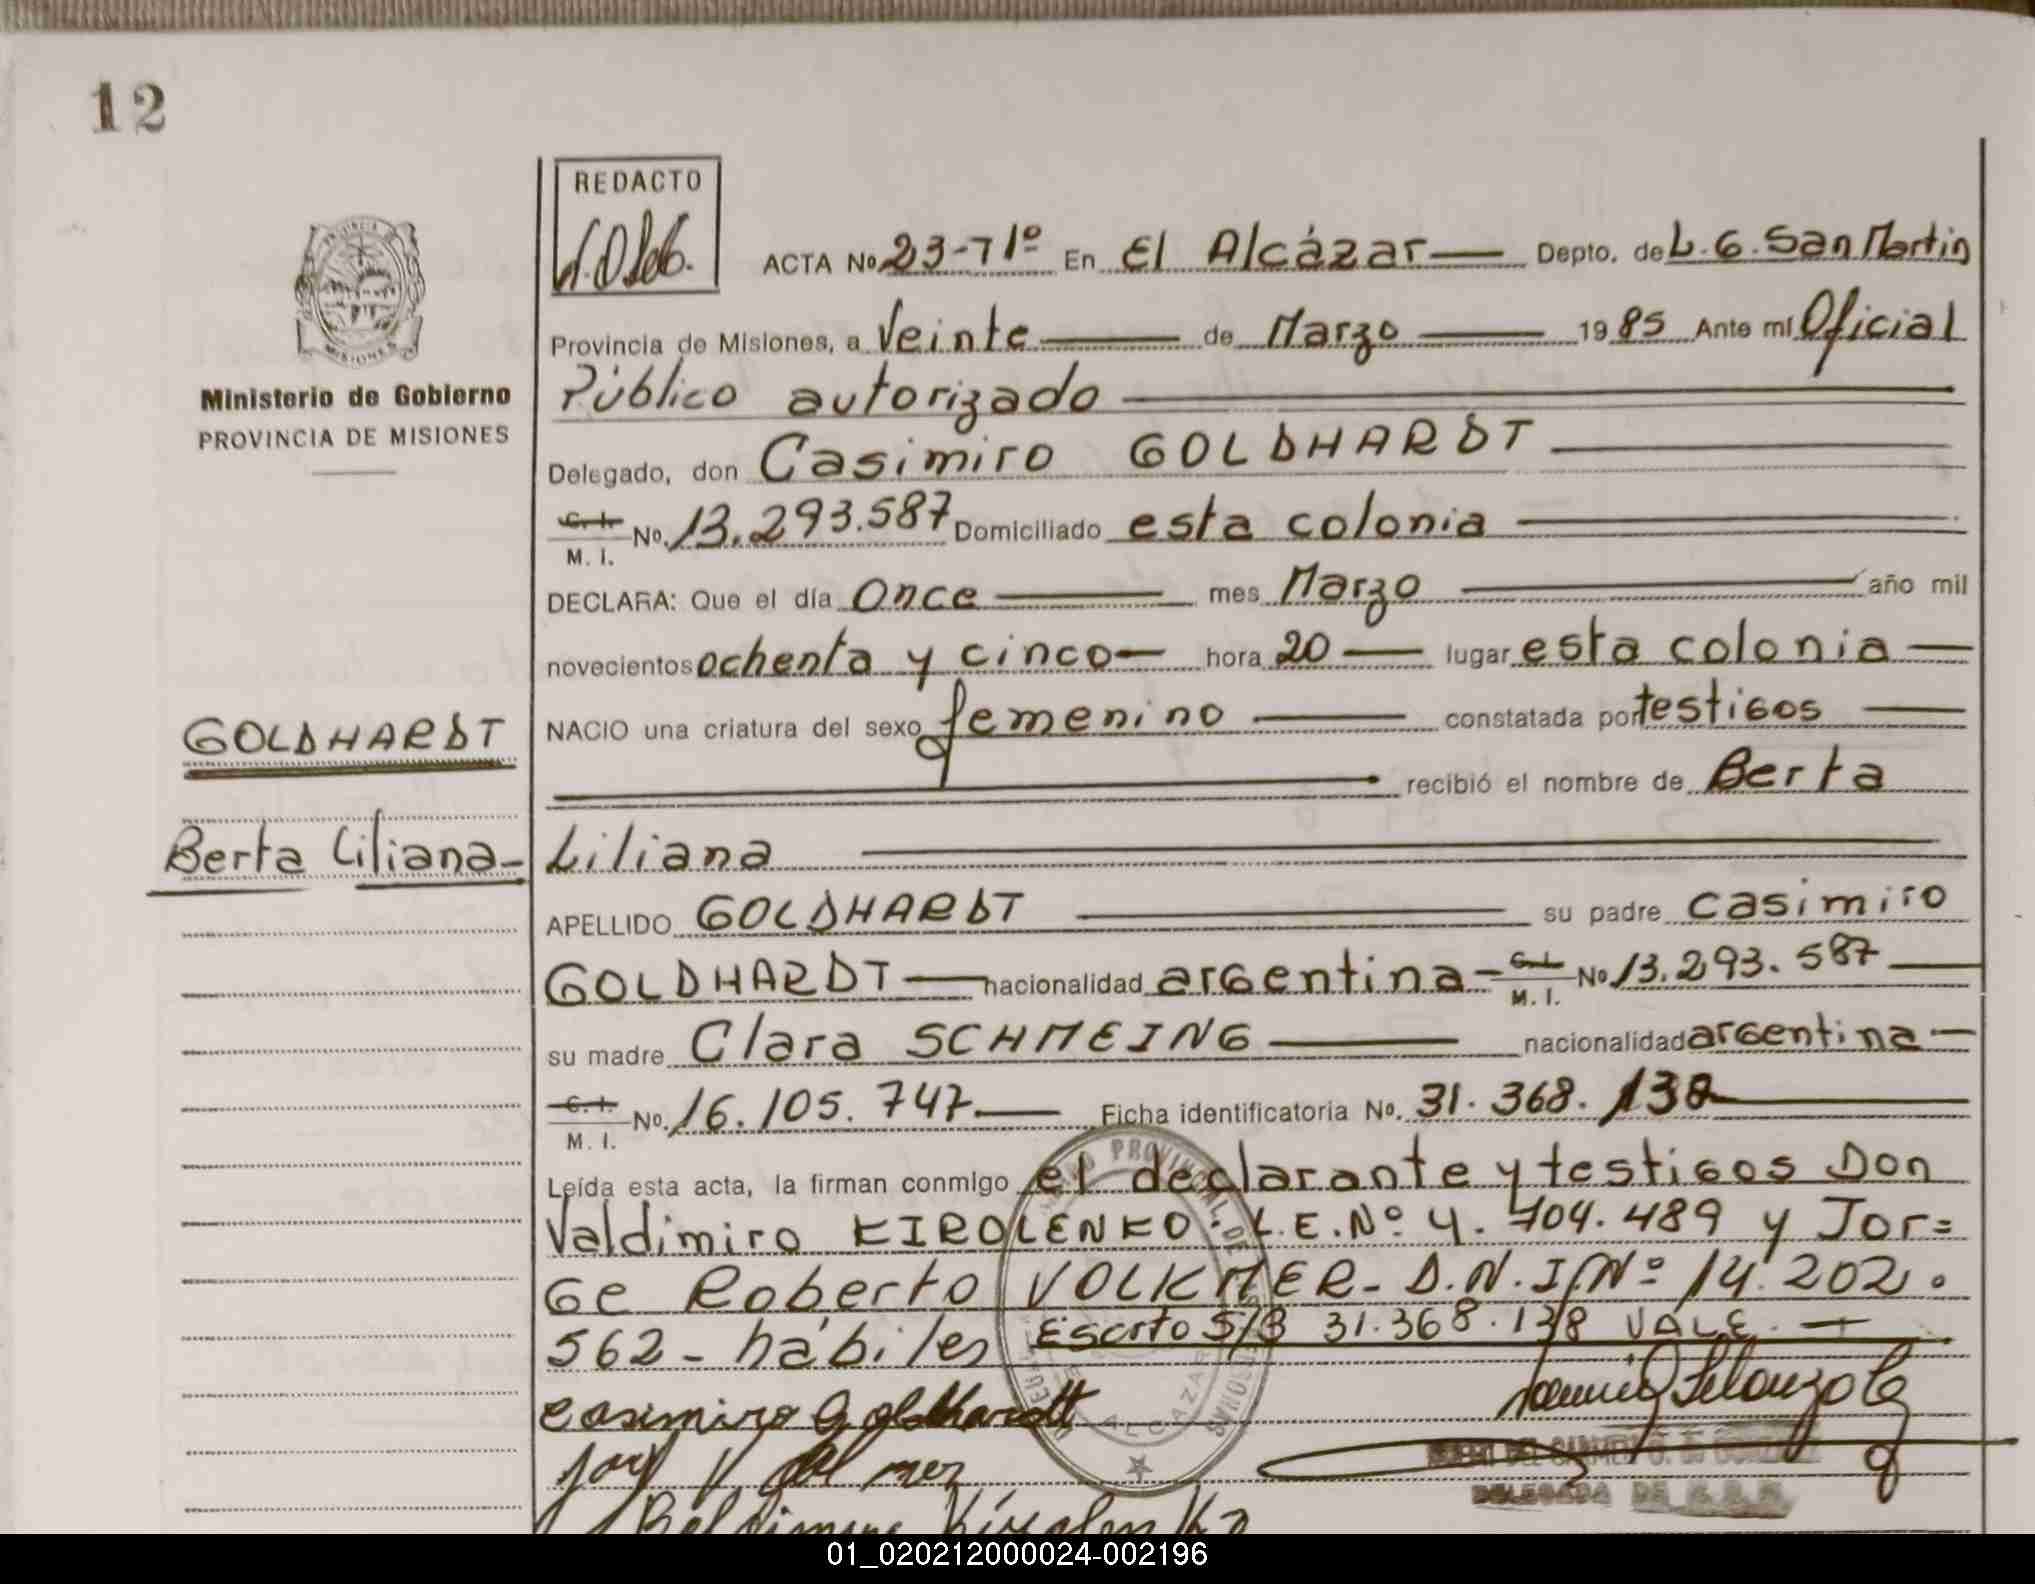 12
REDACTO
ACTA No 23-71º En El Alcázar — Depto. de L. G. San Martin
Provincia de Misiones, a Veinte — de Marzo — 1985 Ante mí Oficial
Ministerio de Gobierno
PROVINCIA DE MISIONES
Público autorizado —
Delegado, don Casimiro GOLDHARDT —
C. I. No. 13.293.587 Domiciliado esta colonia —
M. I.
DECLARA: Que el día Once — mes Marzo — año mil
novecientos ochenta y cinco — hora 20 — lugar esta colonia —
NACIO una criatura del sexo femenino — constatada por testigos —
GOLDHARDT
— recibió el nombre de Berta
Berta Liliana-
Liliana —
APELLIDO GOLDHARDT — su padre Casimiro
GOLDHARDT — nacionalidad argentina - C. I. No 13.293.587 —
M. I.
su madre Clara SCHMEING — nacionalidad argentina —
C. I. No. 16.105.747 — Ficha identificatoria No. 31.368.138 —
M. I.
Leída esta acta, la firman conmigo el declarante y testigos Don
Valdimiro KIROLENKO. L.E.Nº 4.704.489 y Jor=
ge Roberto VOLKMER- D.N.I.Nº 14.202.
562- hábiles Escrito S/B 31.368.138 VALE. —
Casimiro Goldhardt
PROVINCIAL DE
ALCAZAR
DELEGADA DE
01_020212000024-002196